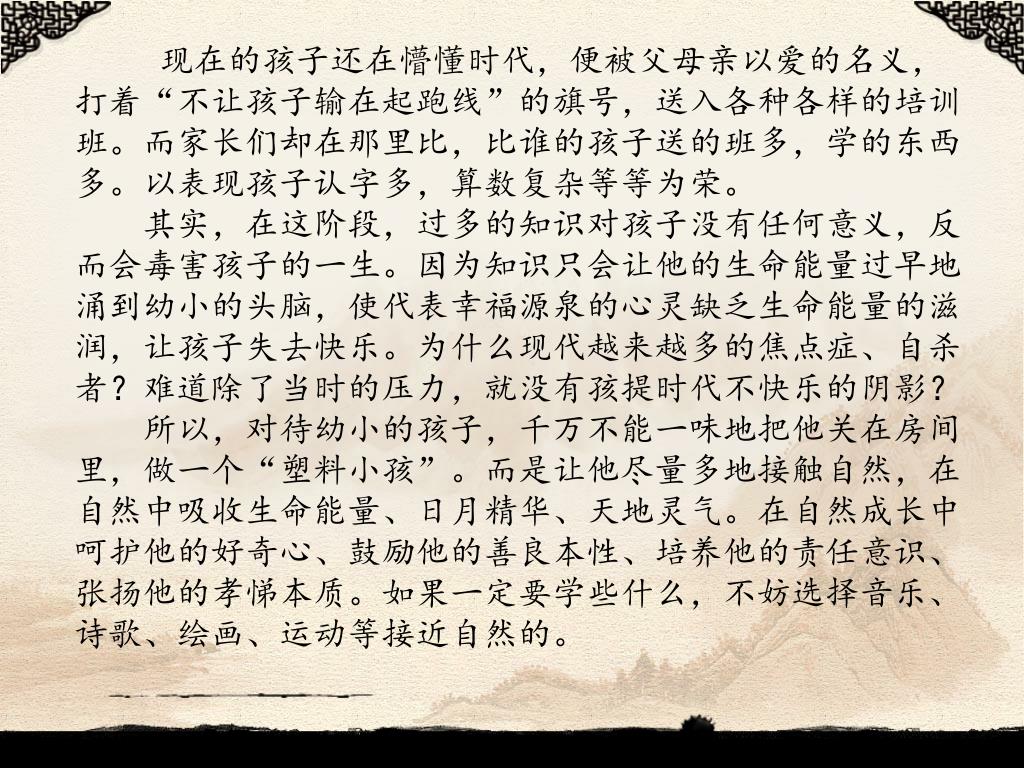 现在的孩子还在懵懂时代，便被父母亲以爱的名义，
打着“不让孩子输在起跑线”的旗号，送入各种各样的培训
班。而家长们却在那里比，比谁的孩子送的班多，学的东西
多。以表现孩子认字多，算数复杂等等为荣。
其实，在这阶段，过多的知识对孩子没有任何意义，反
而会毒害孩子的一生。因为知识只会让他的生命能量过早地
涌到幼小的头脑，使代表幸福源泉的心灵缺乏生命能量的滋
润，让孩子失去快乐。为什么现代越来越多的焦点症、自杀
者？难道除了当时的压力，就没有孩提时代不快乐的阴影？
所以，对待幼小的孩子，千万不能一味地把他关在房间
里，做一个“塑料小孩”。而是让他尽量多地接触自然，在
自然中吸收生命能量、日月精华、天地灵气。在自然成长中
呵护他的好奇心、鼓励他的善良本性、培养他的责任意识、
张扬他的孝悌本质。如果一定要学些什么，不妨选择音乐、
诗歌、绘画、运动等接近自然的。